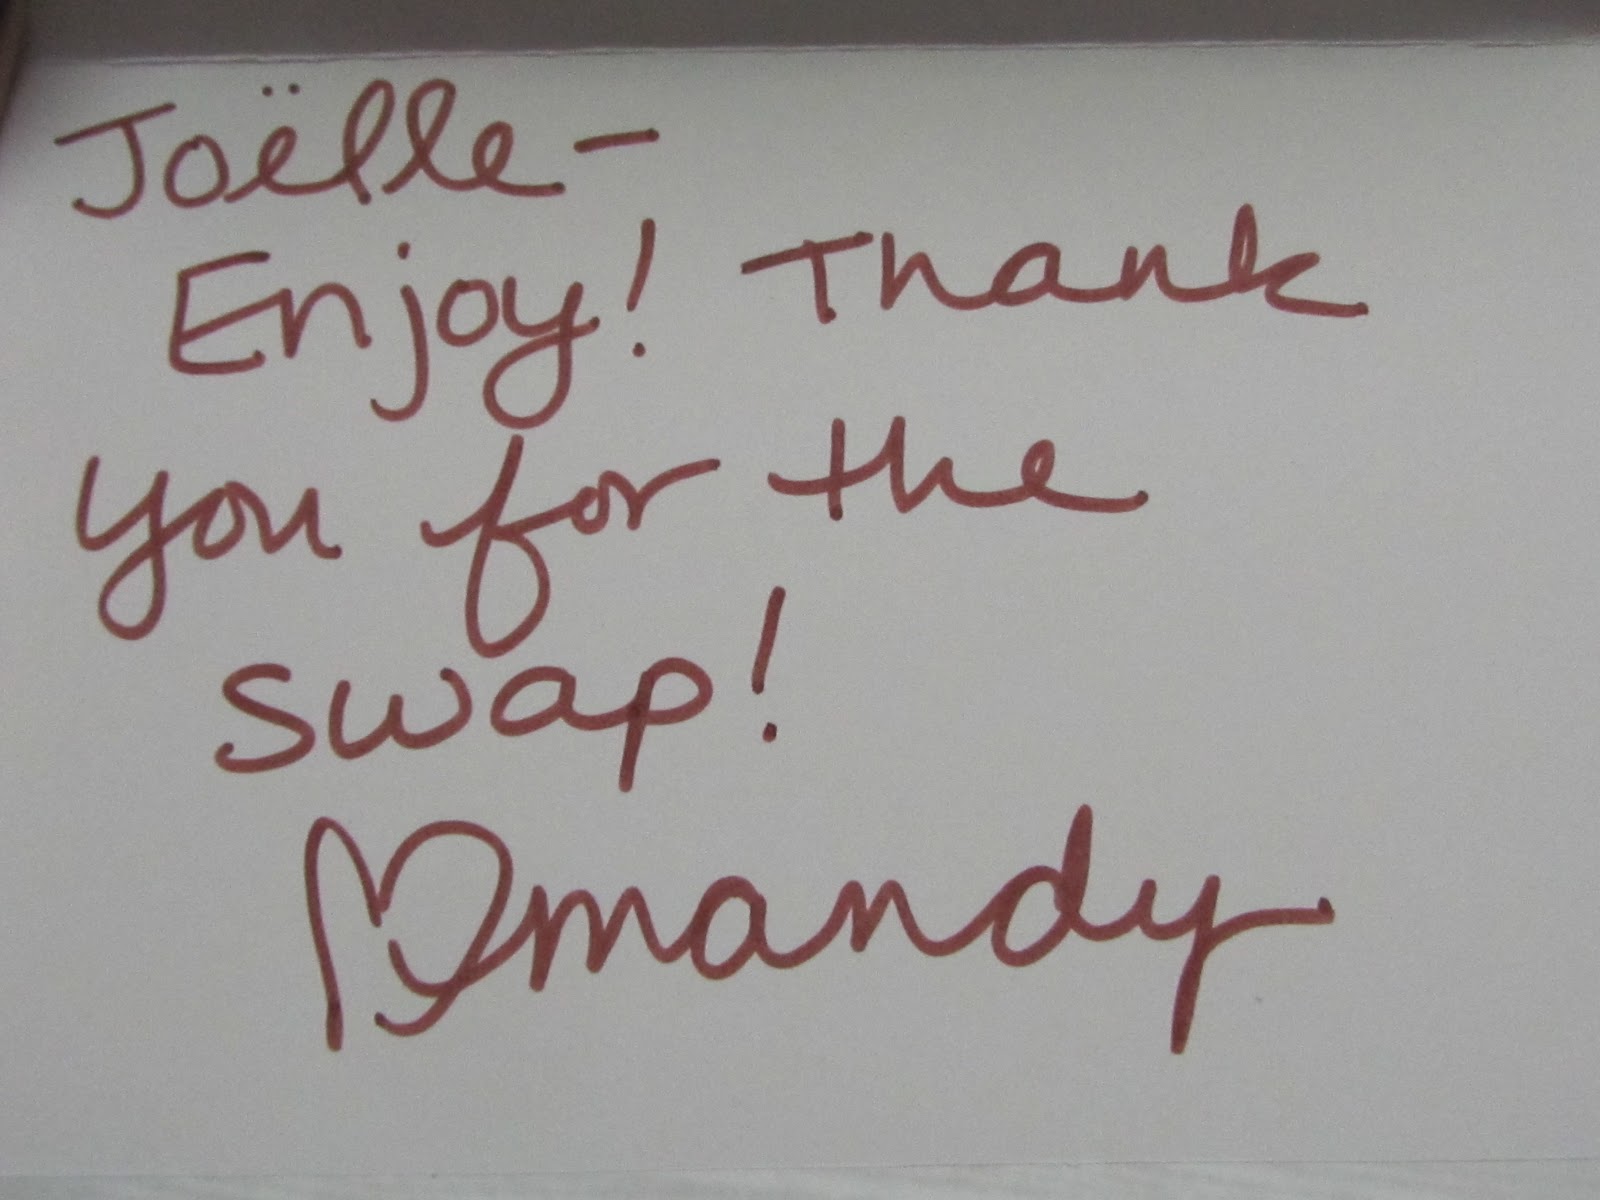 Joëlle -
Enjoy! Thank
you for the
swap!
♡mandy